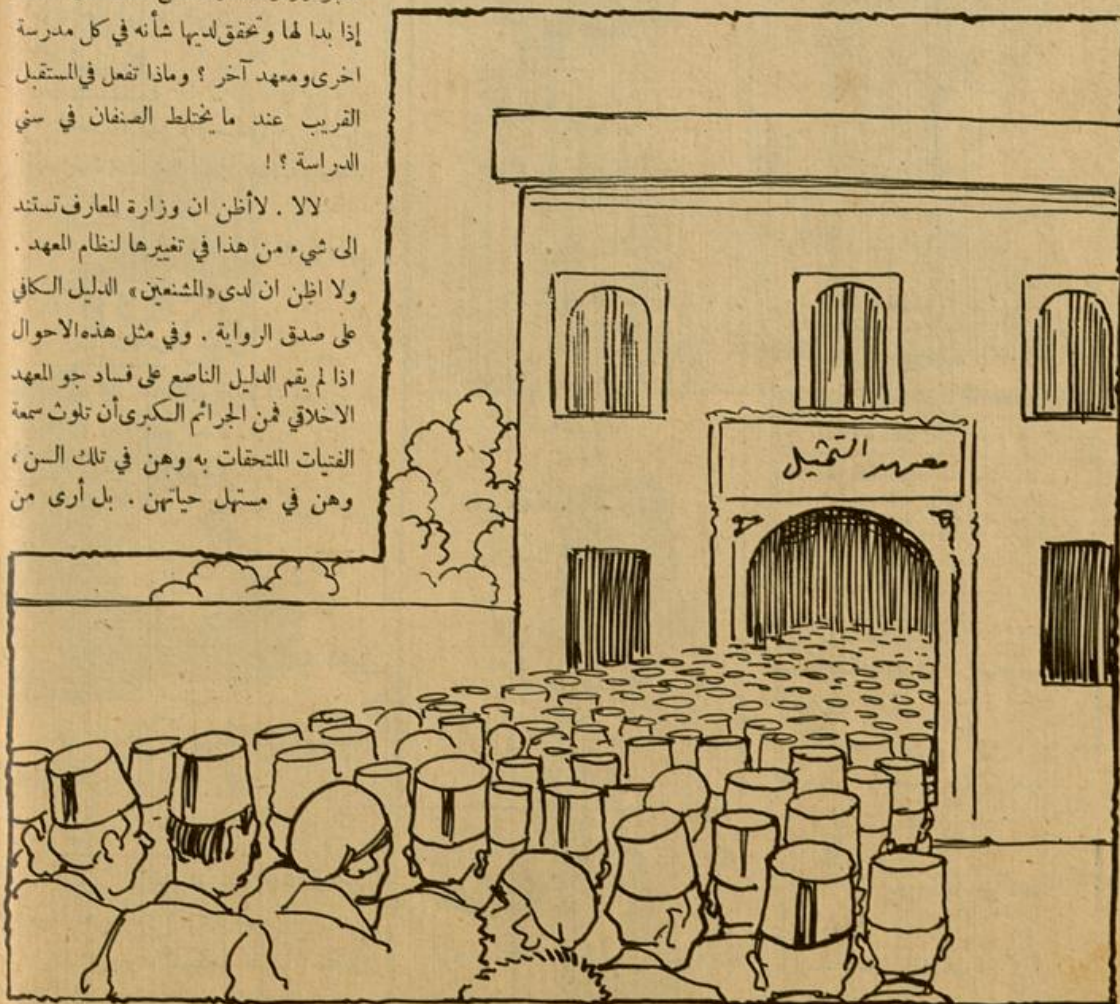 إذا بدا لها وتحقق لديها شأنه في كل مدرسة
اخرى ومعهد آخر ؟ وماذا تفعل في المستقبل
القريب عند ما يختلط الصنفان في سني
الدراسة ؟ !
لالا . لاأظن ان وزارة المعارف تستند
الى شيء من هذا في تغييرها لنظام المعهد .
ولا اظن ان لدى «المشنعين» الدليل الكافي
على صدق الرواية . وفي مثل هذه الاحوال
اذا لم يقم الدليل الناصع على فساد جو المعهد
الاخلاقي فمن الجرائم الكبرى أن تلوث سمعة
الفتيات الملتحقات به وهن في تلك السن ،
وهن في مستهل حياتهن . بل أرى من
معهد التمثيل